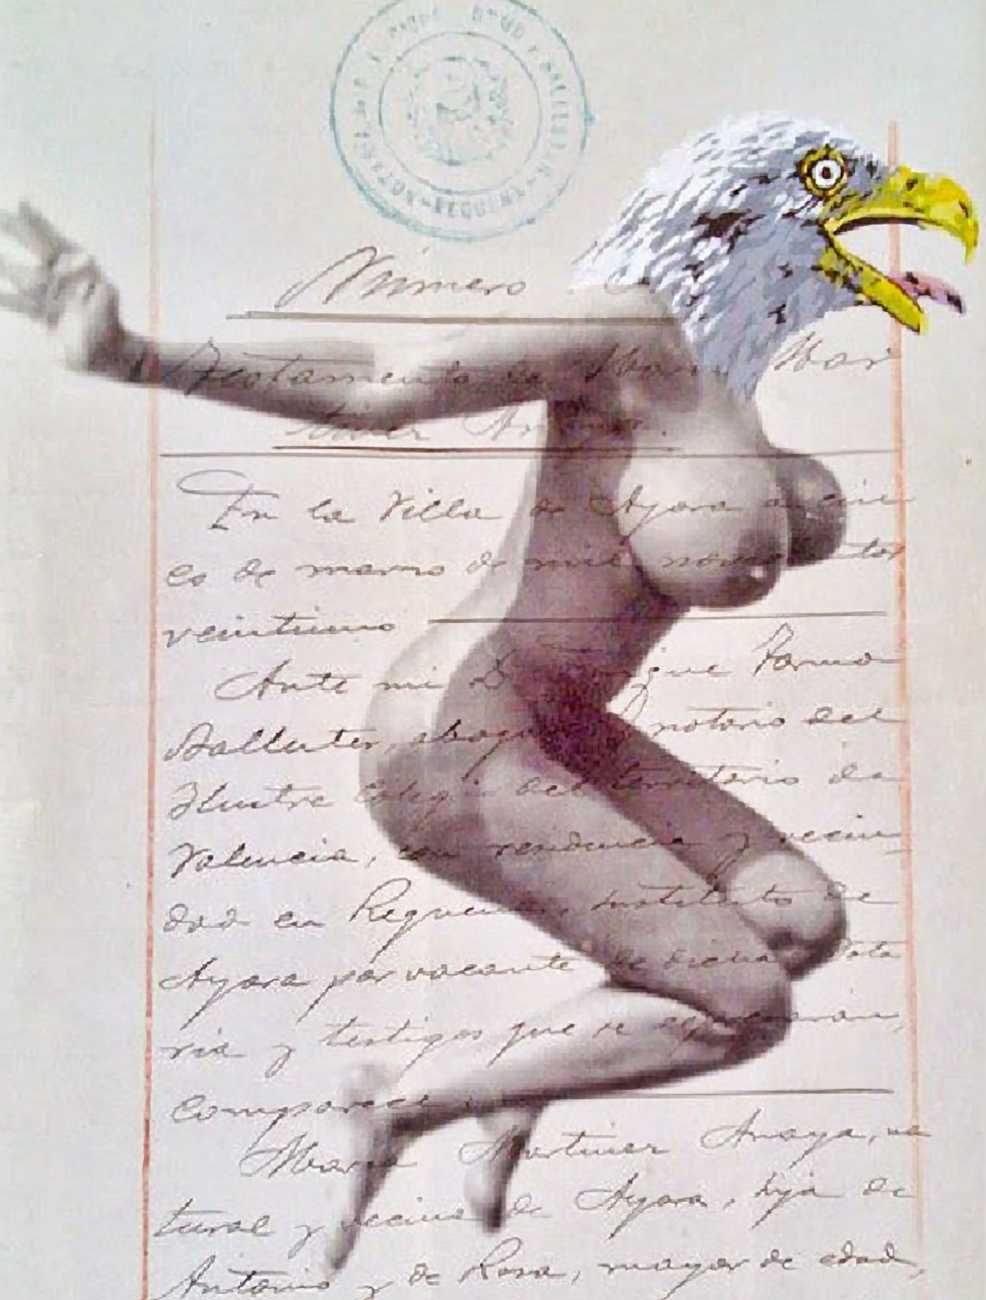 Número
Testamento de María Mar
tínez
En la Villa de Ayora a cin
co de marzo de mil novecientos
veintiuno
Ante mi D. Enrique
Ballester, abogado notario del
Ilustre Colegio del territorio de
Valencia, con residencia y vecin
dad en Requena, sustituto de
Ayora por vacante de dicha Nota
ria y testigos que se expresarán,
comparece
María Martínez Anaya, na
tural y vecina de Ayora, hija de
Antonio y de Rosa, mayor de edad,